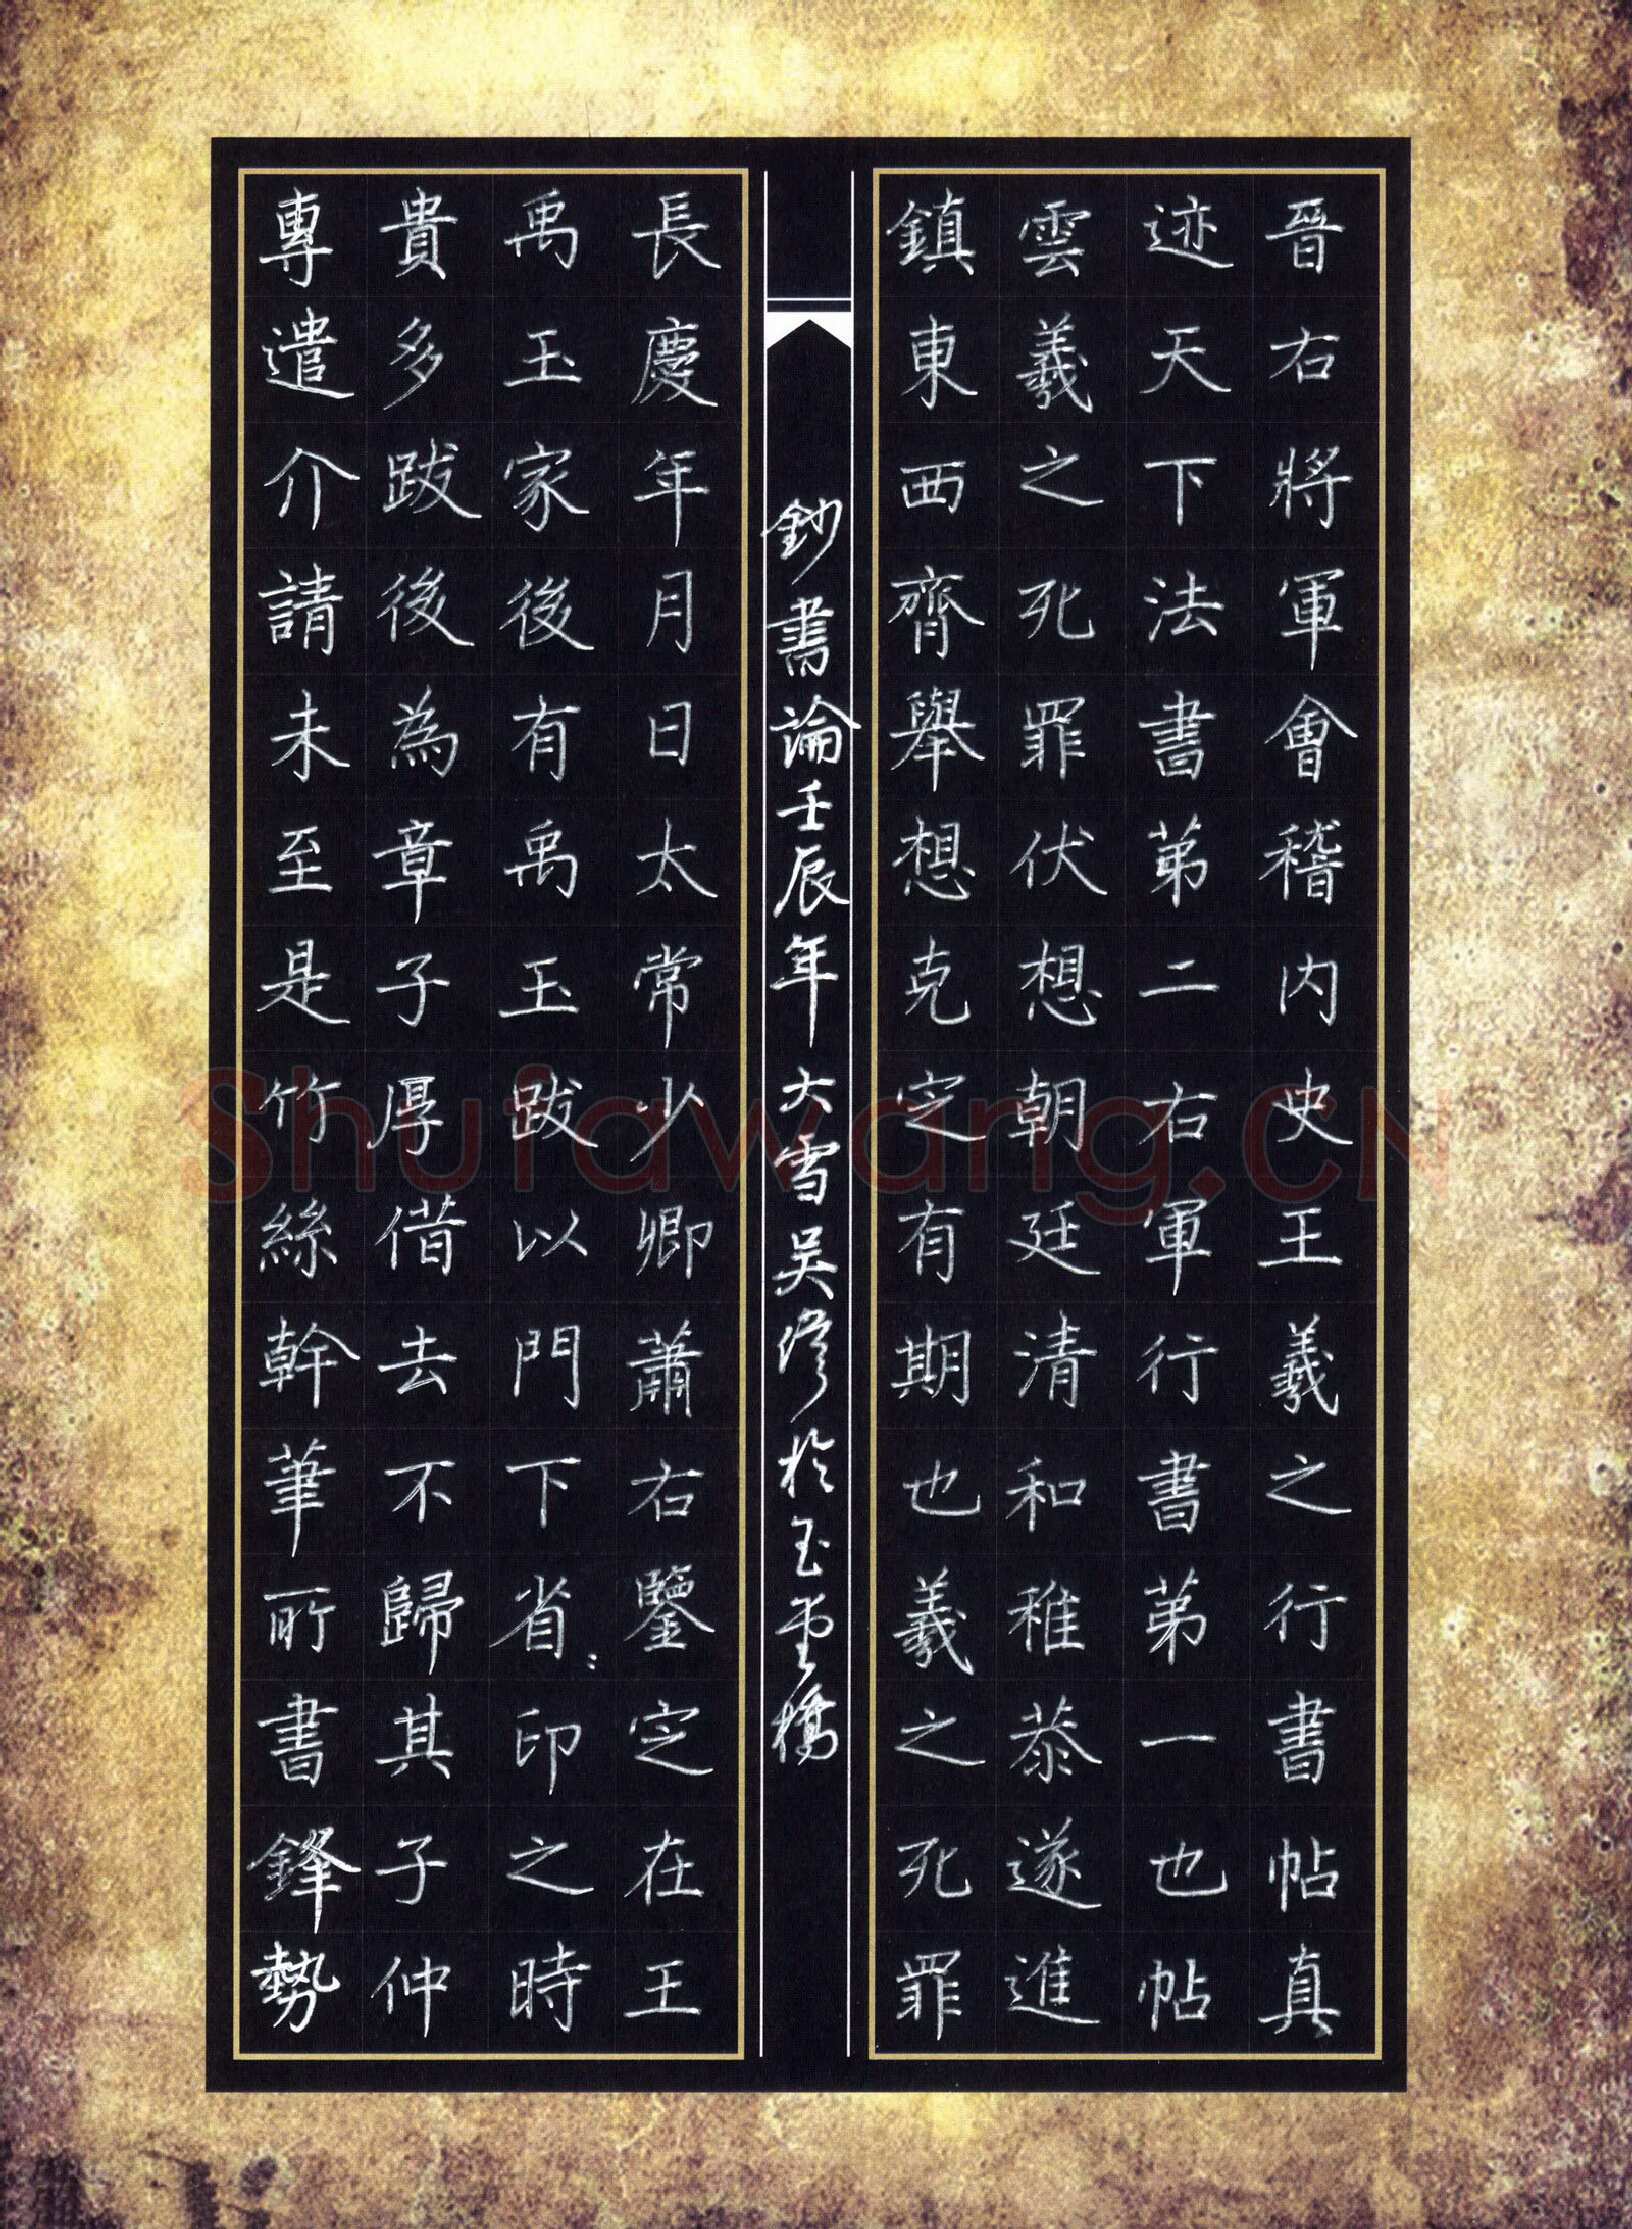 晉右將軍會稽内史王羲之行書帖真
迹天下法書第二右軍行書第一也帖
雲羲之死罪伏想朝廷清和稚恭遂進
鎮東西齊舉想克定有期也羲之死罪
鈔書論壬辰年大雪吴修於玉雲橋
長慶年月日太常少卿蕭右鑒定在王
禹玉家後有禹玉跋以門下省:印之時
貴多跋後為章子厚借去不歸其子仲
專遣介請未至是竹絲幹筆所書鋒勢
Shufawang.CN